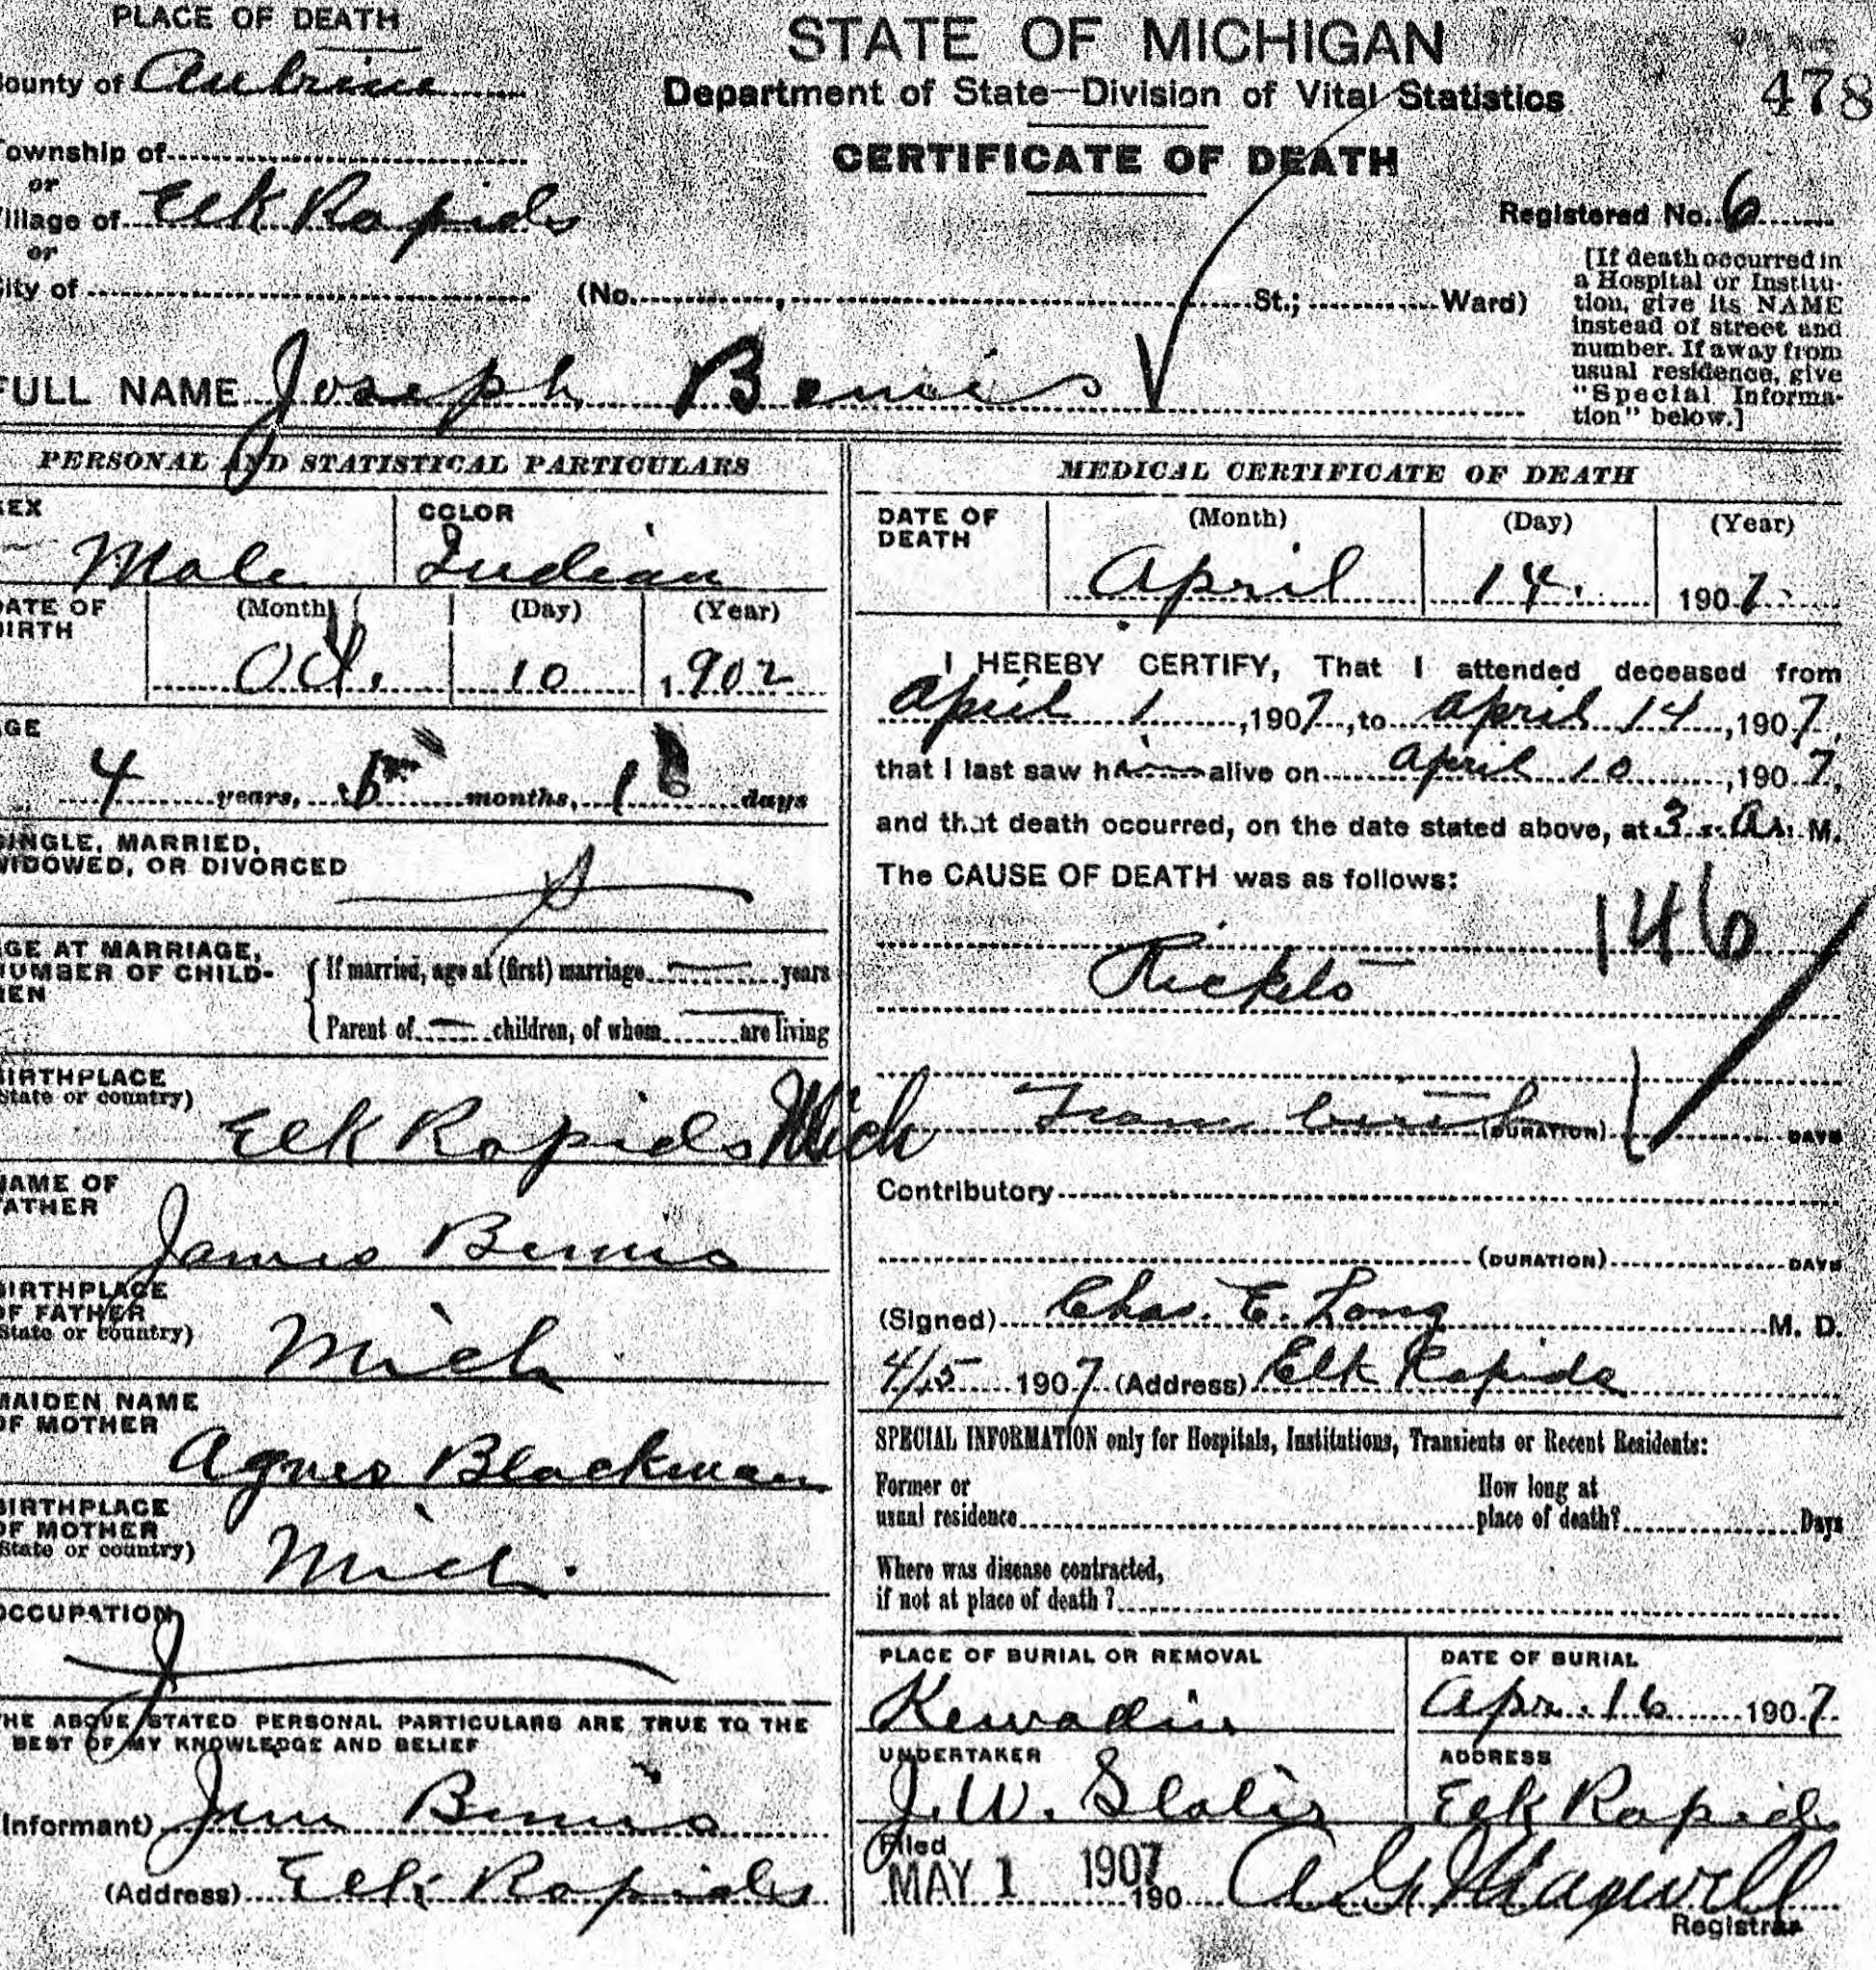 PLACE OF DEATH
County of Antrim
Township of
or
Village of Elk Rapids
or
City of
STATE OF MICHIGAN
Department of State—Division of Vital Statistics
CERTIFICATE OF DEATH
478
Registered No. 6
(No. , St.; Ward)
[If death occurred in
a Hospital or Institu-
tion, give its NAME
instead of street and
number. If away from
usual residence, give
"Special Informa-
tion" below.]
FULL NAME Joseph Bemis
PERSONAL AND STATISTICAL PARTICULARS
SEX
Male
COLOR
Indian
DATE OF
BIRTH
(Month) (Day) (Year)
Oct. 10 1902
AGE
4 years, months, days
SINGLE, MARRIED,
WIDOWED, OR DIVORCED
S
AGE AT MARRIAGE,
NUMBER OF CHILD-
REN
If married, age at (first) marriage years
Parent of children, of whom are living
BIRTHPLACE
(State or country)
Elk Rapids Mich
NAME OF
FATHER
James Bemis
BIRTHPLACE
OF FATHER
(State or country)
Mich
MAIDEN NAME
OF MOTHER
Agnes Blackman
BIRTHPLACE
OF MOTHER
(State or country)
Mich.
OCCUPATION
THE ABOVE STATED PERSONAL PARTICULARS ARE TRUE TO THE
BEST OF MY KNOWLEDGE AND BELIEF
(Informant) Bemis
(Address) Elk Rapids
MEDICAL CERTIFICATE OF DEATH
DATE OF
DEATH
(Month) (Day) (Year)
April 14. 1907
I HEREBY CERTIFY, That I attended deceased from
April 1, 1907, to April 14, 1907,
that I last saw him alive on April 10, 1907,
and that death occurred, on the date stated above, at 3 A. M.
The CAUSE OF DEATH was as follows:
146
Rickets
From birth (DURATION) DAYS
Contributory
(DURATION) DAYS
(Signed) Chas. E. Long M. D.
4/15 1907 (Address) Elk Rapids
SPECIAL INFORMATION only for Hospitals, Institutions, Transients or Recent Residents:
Former or
usual residence
How long at
place of death? Days
Where was disease contracted,
if not at place of death?
PLACE OF BURIAL OR REMOVAL
Kewadin
DATE OF BURIAL
Apr. 16 1907
UNDERTAKER
J. W. Slater
ADDRESS
Elk Rapids
Filed
MAY 1 1907
190
Registrar